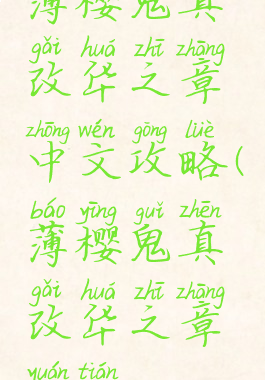 薄樱鬼真
gǎi huá zhī zhāng
改华之章
zhōng wén gōng lüè
中文攻略(
báo yīng guǐ zhēn
薄樱鬼真
gǎi huá zhī zhāng
改华之章
yuán tián